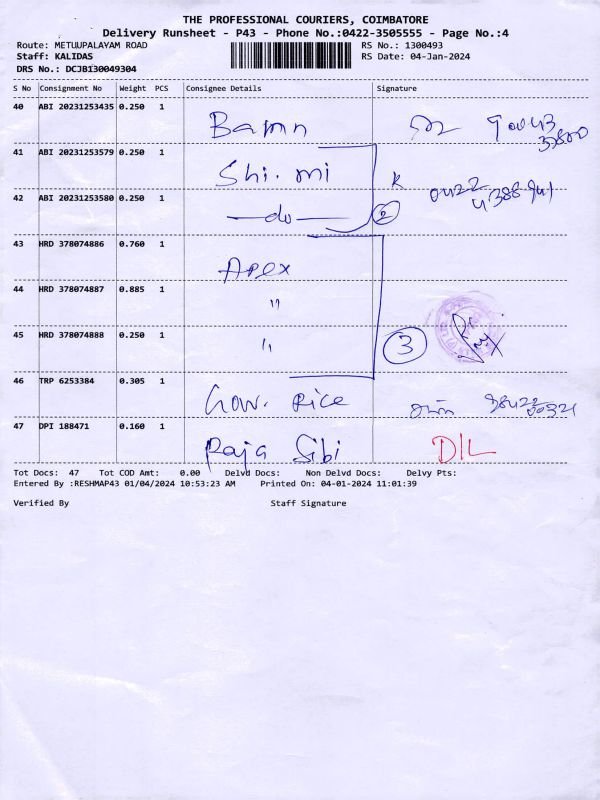 THE PROFESSIONAL COURIERS, COIMBATORE
Delivery Runsheet - P43 - Phone No.:0422-3505555 - Page No.:4
Route: METUUPALAYAM ROAD RS No.: 1300493
Staff: KALIDAS RS Date: 04-Jan-2024
DRS No.: DCJBI30049304
S No Consignment No Weight PCS Consignee Details Signature
40 ABI 20231253435 0.250 1
41 ABI 20231253579 0.250 1
Shi. mi
42 ABI 20231253580 0.250 1
do 2
43 HRD 378074886 0.760 1
Apex
44 HRD 378074887 0.885 1
"
45 HRD 378074888 0.250 1
" 3
46 TRP 6253384 0.305 1
Gow. Rice
47 DPI 188471 0.160 1
Raja Sibi D/L
Tot Docs: 47 Tot COD Amt: 0.00 Delvd Docs: Non Delvd Docs: Delvy Pts:
Entered By :RESHMAP43 01/04/2024 10:53:23 AM Printed On: 04-01-2024 11:01:39
Verified By Staff Signature